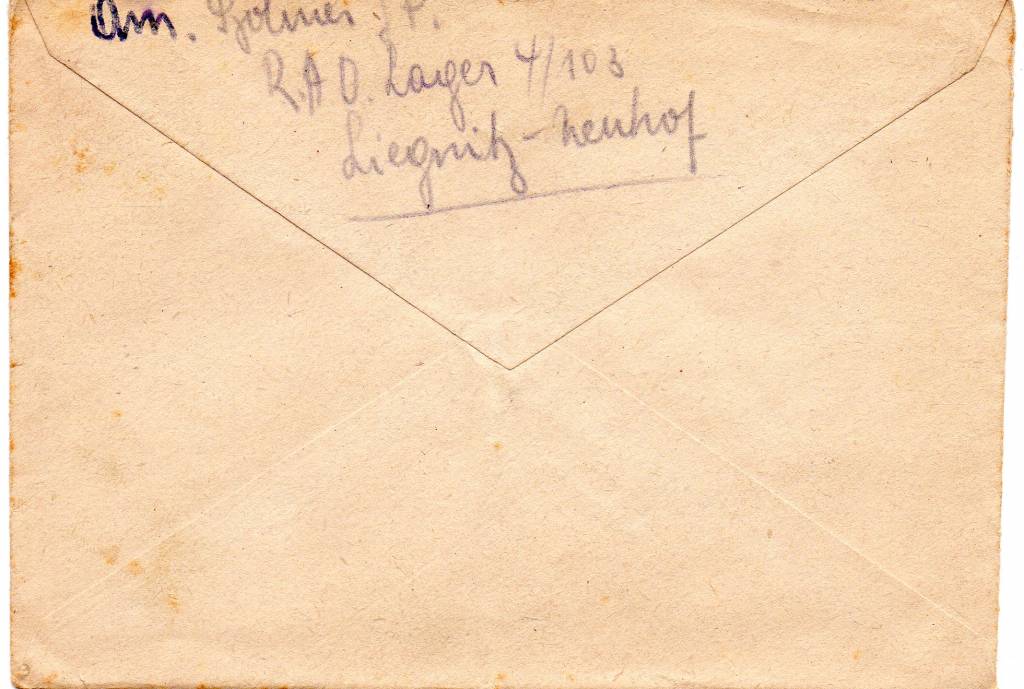 Am.
R.A.D. Lager 4/103
Liegnitz-Neuhof